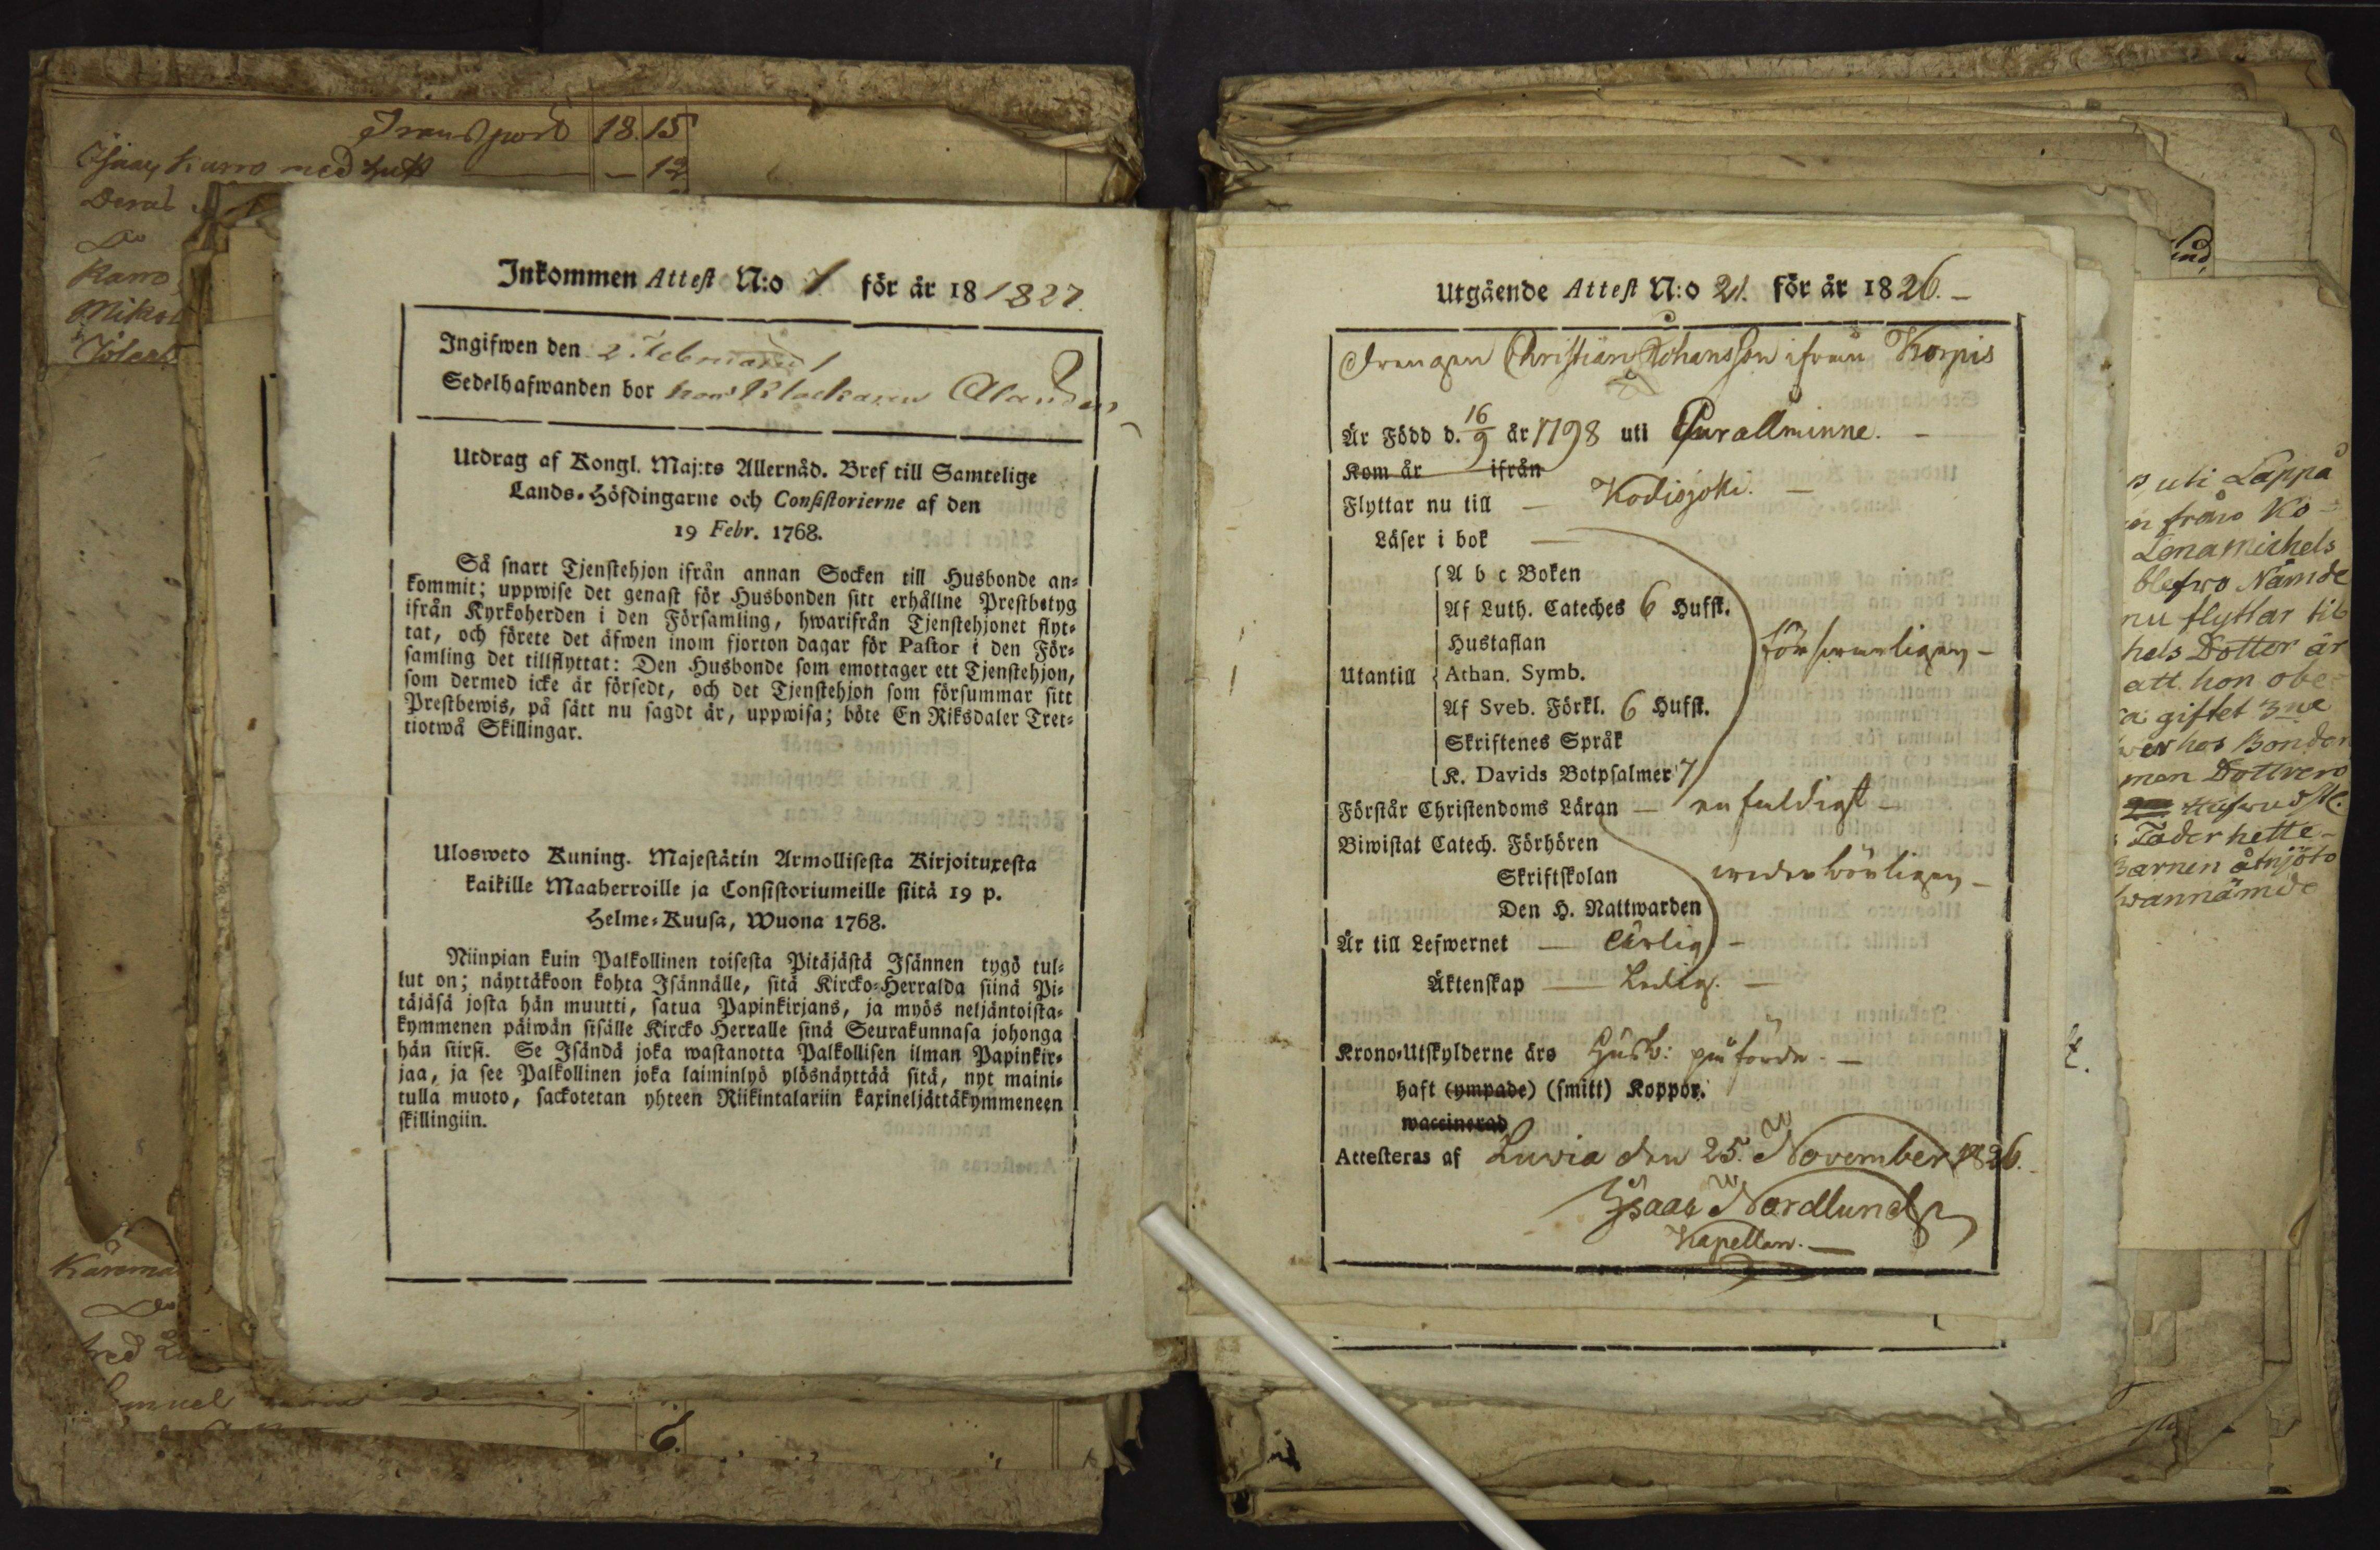 Transport 18. 15
Karro med — 12
Deral
Do
Karro
Inkommen Attest N:o 7 för år 18 1827.
Ingifwen den 2 Februarii
Sedelhafwanden bor hos Klockaren Alander
Utdrag af Kongl. Maj:ts Allernåd. Bref till Samtelige
Lands-Höfdingarne och Consistorierne af den
19 Febr. 1768.
Så snart Tjenstehjon ifrån annan Socken till Husbonde an-
kommit; uppwise det genast för Husbonden sitt erhållne Prestbetyg
ifrån Kyrkoherden i den Församling, hwarifrån Tjenstehjonet flyt-
tat, och förete det äfwen inom fjorton dagar för Pastor i den För-
samling det tillflyttat: Den Husbonde som emottager ett Tjenstehjon,
som dermed icke är försedt, och det Tjenstehjon som försummar sitt
Prestbewis, på sätt nu sagdt är, uppwisa; böte En Riksdaler Tret-
tiotwå Skillingar.
Ulosweto Kuning. Majestätin Armollisesta Kirjoituxesta
kaikille Maaherroille ja Consistoriumeille siitä 19 p.
Helme-Kuusa, Wuona 1768.
Niinpian kuin Palkollinen toisesta Pitäjästä Isännen tygö tul-
lut on; näyttäkoon kohta Isännälle, sitä Kircko-Herralda siinä Pi-
täjäsä josta hän muutti, satua Papinkirjans, ja myös neljäntoista-
kymmenen päiwän sisälle Kircko Herralle sinä Seurakunnasa johonga
hän siirsi. Se Isändä joka wastanotta Palkollisen ilman Papinkir-
jaa, ja see Palkollinen joka laiminlyö ylösnäyttää sitä, nyt maini-
tulla muoto, sackotetan yhteen Riikintalariin kaxineljättäkymmeneen
skillingiin.
Utgående Attest N:o 21. för år 1826.
Drengen Christian Johansson ifrån Korpis
Är Född d. 16/9 år 1798 uti Eurallminne.
Kom år ifrån
Flyttar nu till — Kodisjoki. —
Läser i bok —
A b c Boken
Af Luth. Cateches 6 Hufst.
Hustaflan
försvarligen —
Utantill Athan. Symb.
Af Sveb. Förkl. 6 Hufst.
Skriftenes Språk
K. Davids Botpsalmer 7
Förstår Christendoms Läran — enfaldigt —
Biwistat Catech. Förhören
Skriftskolan wederbörligen —
Den H. Nattwarden
Är till Lefwernet — ärlig —
Äktenskap — Ledig. —
Krono-Utskylderne ärs Husb: påförde. —
haft (ympade) (smitt) Koppor.
waccinerad
Attesteras af Luvia den 25. November 1826.
Isaac Nordlund
Kapellan. —
uti Lappå
från Ko-
Lena Michels
blefwo Nämde
nu flyttar til
hels Dotter är
att hon obe-
giftet 3ne
hos Bonden
men Dottren
Fader hette
Barnen åtnjöto
wannämde
6.